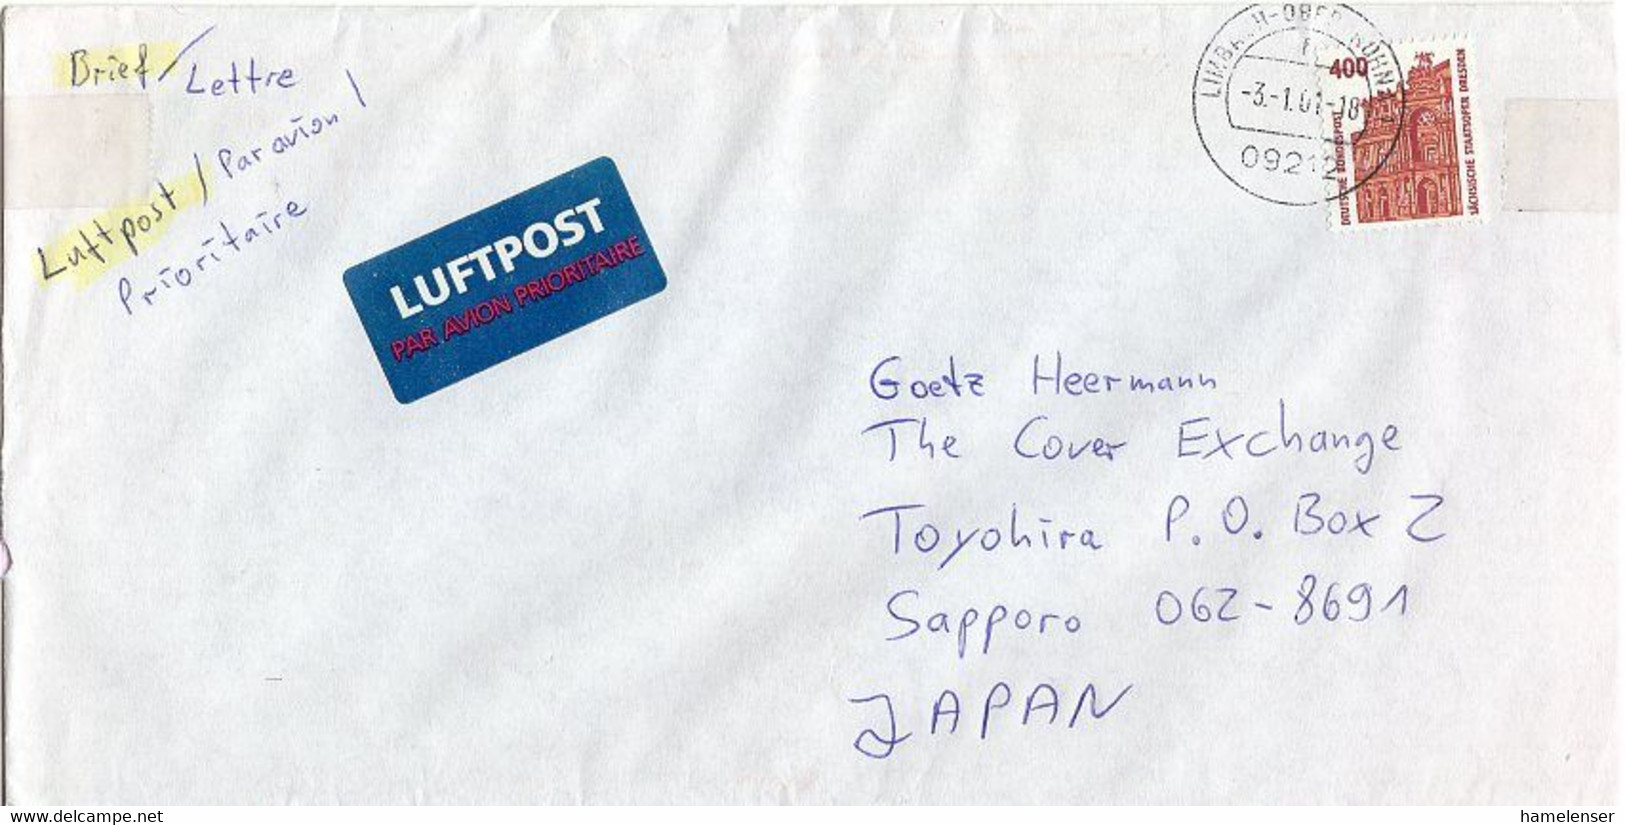 Brief / Lettre
Luftpost / Par avion /
Prioritaire
LUFTPOST
PAR AVION PRIORITAIRE
-3.-1.01-18
09212
400
DEUTSCHE BUNDESPOST
SÄCHSISCHE STAATSOPER DRESDEN
Goetz Heermann
The Cover Exchange
Toyohira P.O. Box 2
Sapporo 062-8691
JAPAN
www.delcampe.net
hamelenser